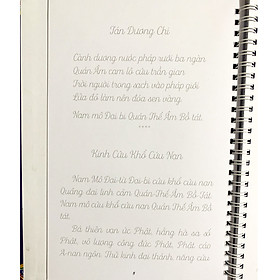 Tán Dương Chi
Cành dương nước pháp rưới ba ngàn
Quán Âm cam lồ cứu trần gian
Trời người trong sạch vào pháp giới
Lửa đỏ làm nên đóa sen vàng
Nam mô Đại bi Quán Thế Âm Bồ tát.
****
Kinh Cứu Khổ Cứu Nạn
Nam Mô Đại từ Đại bi cứu khổ cứu nạn
Quảng đại linh cảm Quán Thế Âm Bồ Tát.
Nam mô cứu khổ cứu nạn Quán Thế Âm Bồ
tát.
Bá thiên vạn ức Phật, hằng hà sa số
Phật, vô lượng công đức Phật. Phật cáo
A-nan ngôn: Thử kinh đại thánh, năng cứu